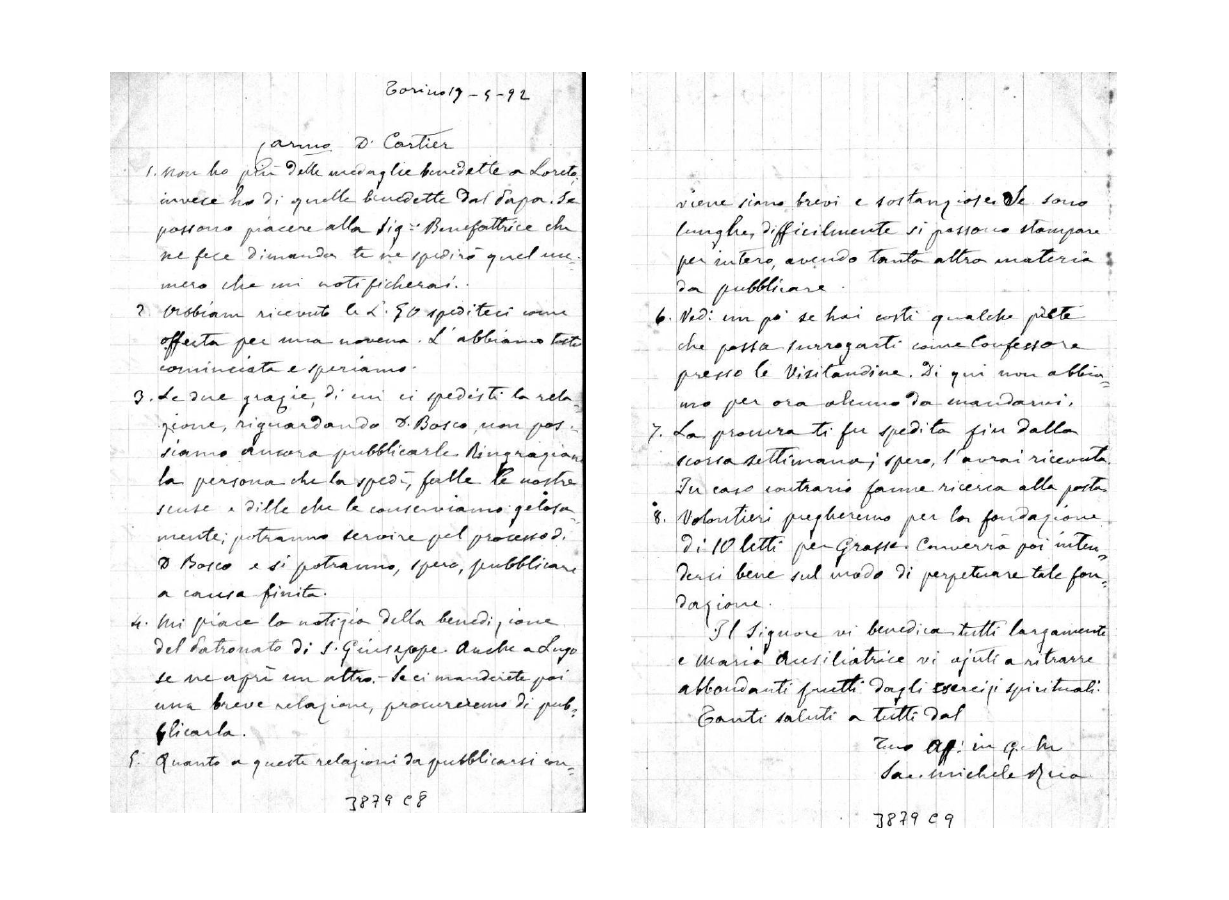 Torino 19-5-92
Carmo D. Cartier
1. Non ho più delle medaglie benedette a Loreto,
invece ho di quelle benedette dal Papa. Se
possono piacere alla Sig.ra Benefattrice che
ne fece dimanda te ne spedirò quel nu-
mero che mi notificherai.
2. Abbiam ricevuto le L. 50 spediteci come
offerta per una novena. L'abbiamo tosto
cominciata e speriamo.
3. Le due grazie, di cui ci spedisti la rela-
zione, riguardando D. Bosco, non pos-
siamo ancora pubblicarle. Ringraziane
la persona che la spedì, falle le nostre
scuse e dille che le conserviamo gelosa-
mente; potranno servire pel processo di
D Bosco e si potranno, spero, pubblicare
a causa finita.
4. Mi piace la notizia della benedizione
del Patronato di S. Giuseppe. Anche a Lugo
se ne aprì un altro. - Se ci manderete poi
una breve relazione, procureremo di pub=
blicarla.
5. Quanto a queste relazioni da pubblicarsi con=
3879 C8
viene siano brevi e sostanziose. Se sono
lunghe, difficilmente si possono stampare
per intero, avendo tanta altra materia
da pubblicare.
6. Vedi un po' se hai costì qualche prete
che possa surrogarti come Confessore
presso le Visitandine. Di qui non abbia=
mo per ora alcuno da mandarvi.
7. La procura ti fu spedita fin dalla
scorsa settimana; spero, l'avrai ricevuta.
In caso contrario fanne ricerca alla posta.
8. Volontieri pregheremo per la fondazione
di 10 letti per Grasse. Converrà poi inten=
dersi bene sul modo di perpetuare tale fon=
dazione.
Il Signore vi benedica tutti largamente
e Maria Ausiliatrice vi ajuti a ritrarre
abbondanti frutti dagli esercizi spirituali.
Tanti saluti a tutti dal
Tuo Aff. in G. e M
Sac. Michele Rua
3879 C9